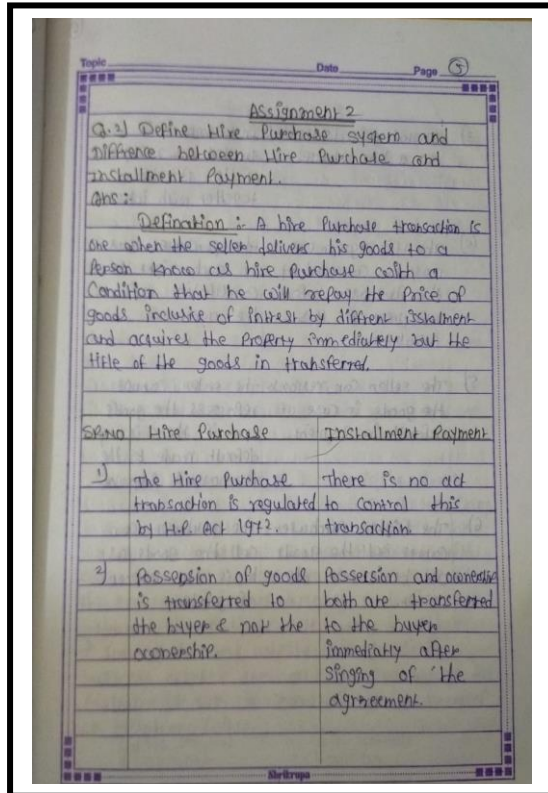 Topic Date Page 5
Assignment 2
Q.2) Define Hire Purchase system and
Diffrence between Hire Purchase and
Installment Payment.
Ans :
Defination :- A hire Purchase transaction is
one when the seller delivers his goods to a
Person know as hire Purchase with a
Condition that he will repay the Price of
goods inclusive of Intrest by diffrent isstalment
and acquires the Property immediately but the
title of the goods in transferred.
SR.NO Hire Purchase Installment Payment
1) The Hire Purchase There is no act
transaction is regulated to control this
by H.P. Act 1972. transaction.
2) Possension of goods Possession and ownership
is transferred to both are transferred
the buyer & not the to the buyer
ownership. immediatly after
singing of the
agreement.
Shrikrupa